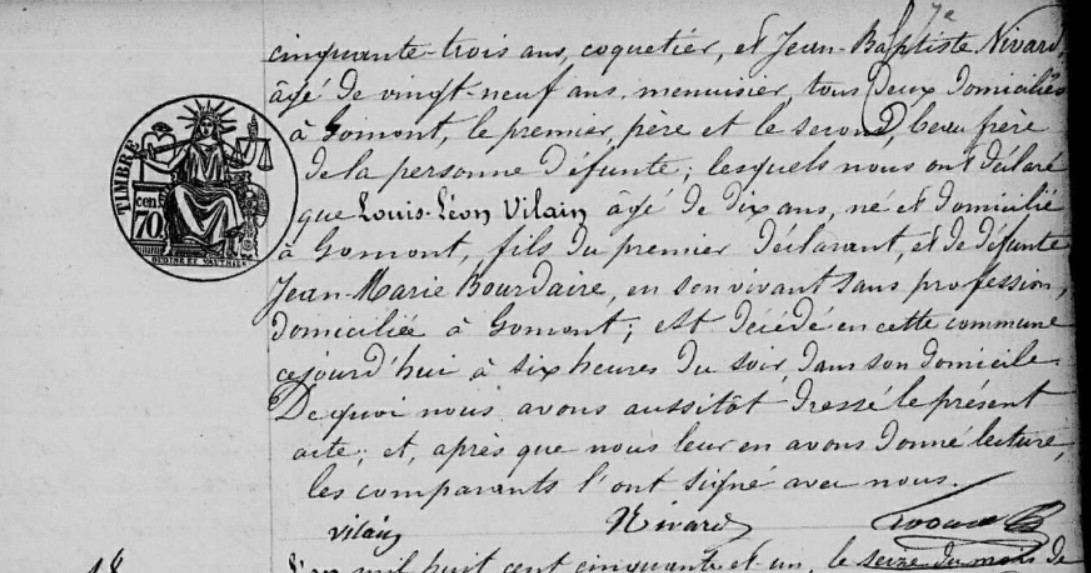 7e
cinquante-trois ans, coquetier, et Jean-Baptiste Nivard,
âgé de vingt-neuf ans, menuisier, tous deux domiciliés
à Gomont, le premier, père et le second, beau frère
de la personne défunte; lesquels nous ont déclaré
que Louis-Léon Vilain âgé de dix ans, né et domicilié
à Gomont, fils du premier déclarant, et de défunte
Jean-Marie Bourdaire, en son vivant sans profession,
domiciliée à Gomont; est décédé en cette commune
cejourd'hui à six heures du soir, dans son domicile.
De quoi nous avons aussitôt dressé le présent
acte; et, après que nous leur en avons donné lecture,
les comparants l'ont signé avec nous.
TIMBRE
cen
70
vilain Nivard
18
L'an mil huit cent cinquante et un, le seize du mois de